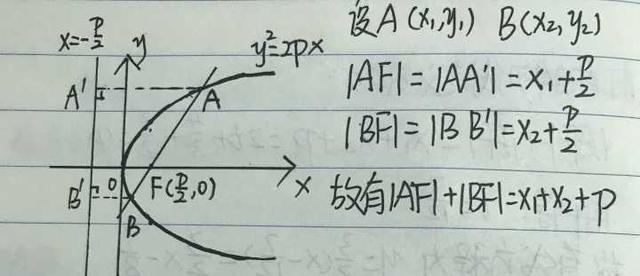 x=-p/2
y
y²=2px
A'
A
B'
0
F(p/2,0)
x
B
设A(x₁,y₁) B(x₂,y₂)
|AF|=|AA'|=x₁+p/2
|BF|=|BB'|=x₂+p/2
故有|AF|+|BF|=x₁+x₂+p